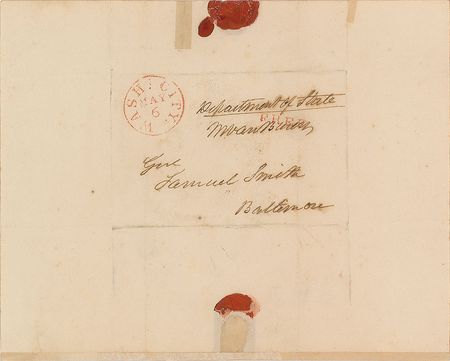 WASH. CITY.
MAY
6
Department of State
FREE
MVanBuren
Genl
Samuel Smith
Baltimore